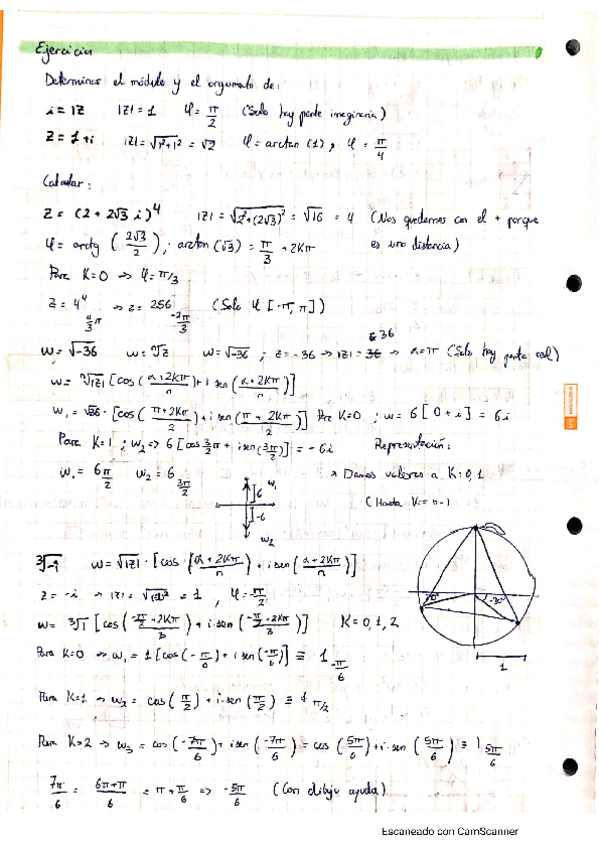 Ejercicios
Determinar el módulo y el argumento de:
i = 1Z |Z| = 1 φ = π/2 (Solo hay parte imaginaria)
Z = 1+i |Z| = √(1²+1²) = √2 φ = arctan (1), φ = π/4
Calcular:
Z = (2 + 2√3 i)^4 |Z| = √(2²+(2√3)²) = √16 = 4 (Nos quedamos con el + porque
φ = arctg (2√3/2), arctan (√3) = π/3 + 2Kπ es una distancia)
Para K=0 → φ = π/3
Z = 4^4 4/3 π → Z = 256 -2π/3 (Solo φ [-π, π])
W = √-36 W = ⁿ√Z W = √-36 ; Z = -36 → |Z| = 36 → α = π (Solo hay parte real)
W = ⁿ√|Z| [cos (α+2Kπ/n) + i sen (α+2Kπ/n)]
W₁ = √36 · [cos (π+2Kπ/2) + i sen (π+2Kπ/2)] Para K=0 ; W = 6 [0 + i] = 6i
Para K=1 ; W₂ => 6 [cos 3/2 π + i sen (3π/2)] = -6i Representación:
W₁ = 6 π/2 W₂ = 6 3π/2 Damos valores a K: 0, 1
(Hasta K = n-1
6 W₁
-6
W₂
W = √|Z| · [cos (α+2Kπ/n) + i sen (α+2Kπ/n)]
-30°
Z = -i → |Z| = = 1, φ = -π/2
W = ³√1 [cos (-π/2+2Kπ/3) + i sen (-π/2+2Kπ/3)] K = 0, 1, 2
Para K=0 → W₁ = 1 [cos (-π/6) + i sen (-π/6)] ≡ 1 -π/6
1
Para K=1 → W₂ = cos (π/2) + i·sen (π/2) ≡ 1 π/2
Para K=2 → W₃ = cos (-7π/6) + i sen (-7π/6) = cos (5π/6) + i·sen (5π/6) ≡ 1 5π/6
7π/6 = 6π+π/6 = π + π/6 => -5π/6 (Con dibujo ayuda)
Escaneado con CamScanner